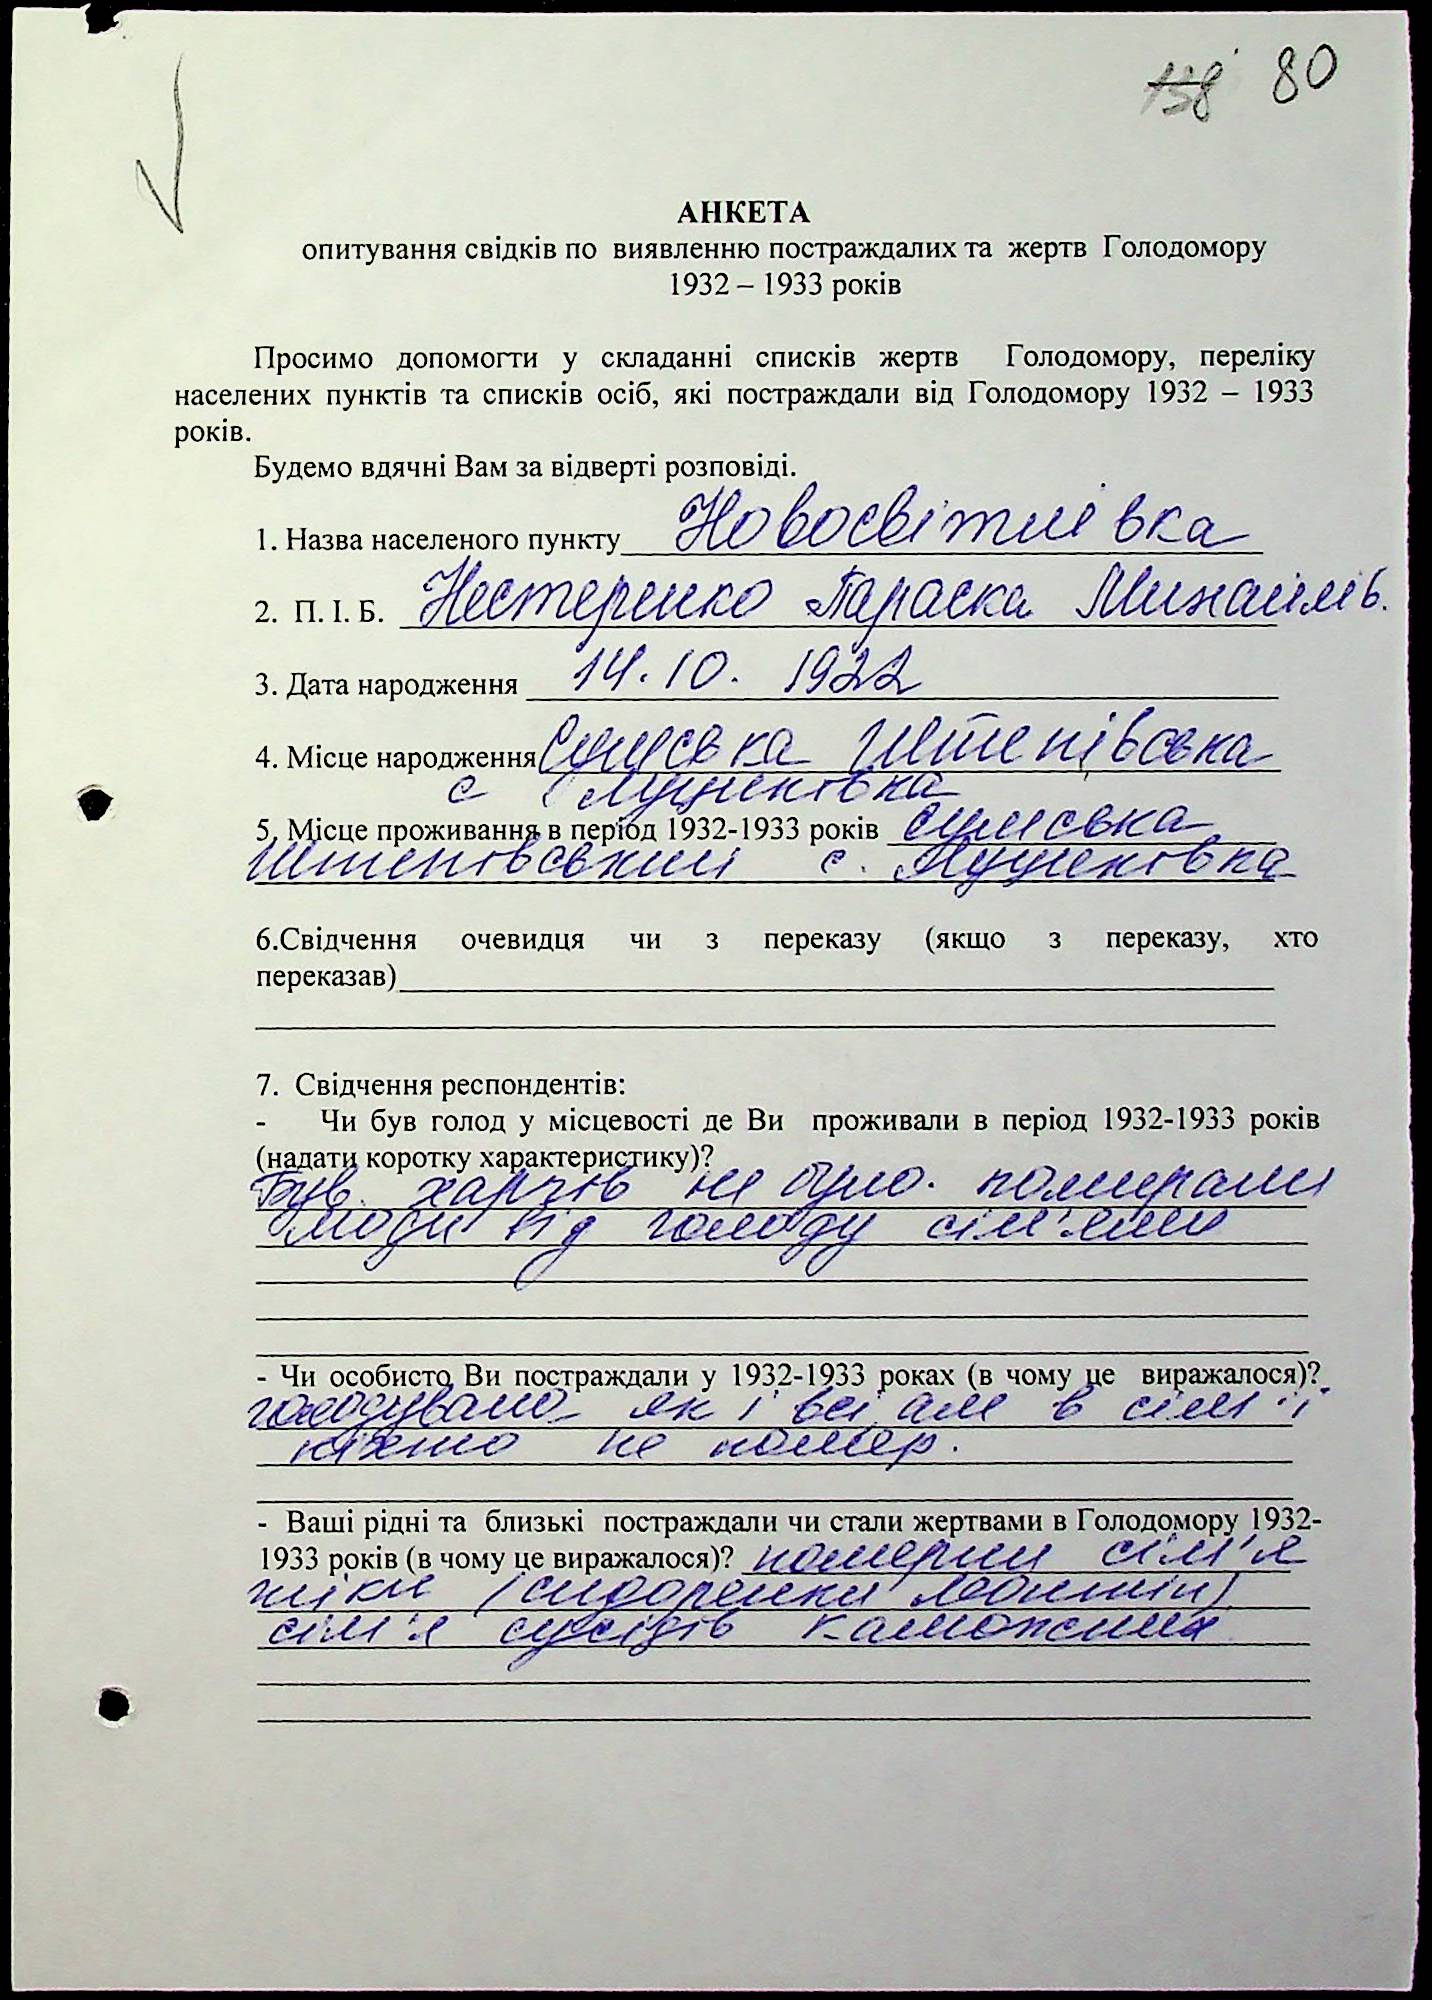 158 80
АНКЕТА
опитування свідків по виявленню постраждалих та жертв Голодомору
1932 – 1933 років
Просимо допомогти у складанні списків жертв Голодомору, переліку
населених пунктів та списків осіб, які постраждали від Голодомору 1932 – 1933
років.
Будемо вдячні Вам за відверті розповіді.
1. Назва населеного пункту Новосвітлівка
2. П. І. Б. Нестеренко Параска Михайлів.
3. Дата народження 14.10. 1922
4. Місце народження Сумська Штепівська
с Луциківка
5. Місце проживання в період 1932-1933 років сумська
Штепівський с. Луциківка
6.Свідчення очевидця чи з переказу (якщо з переказу, хто
переказав)
7. Свідчення респондентів:
- Чи був голод у місцевості де Ви проживали в період 1932-1933 років
(надати коротку характеристику)?
Був. харчів не було. помирали
люди від голоду сім'ями
- Чи особисто Ви постраждали у 1932-1933 роках (в чому це виражалося)?
голодувала як і всі але в сім'ї
ніхто не помер.
- Ваші рідні та близькі постраждали чи стали жертвами в Голодомору 1932-
1933 років (в чому це виражалося)? померли сім'я
сім'я сусідів